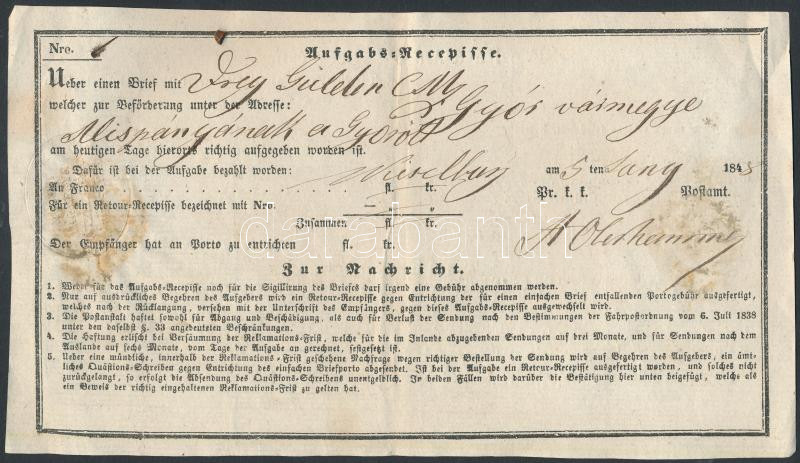 Nro. 6
Aufgabs-Recepisse.
Ueber einen Brief mit Drey Gulden CM
welcher zur Beförderung unter der Adresse: Győr vármegye
Alispányának a Győrött
am heutigen Tage hierorts richtig aufgegeben worden ist.
Dafür ist bei der Aufgabe bezahlt worden: Wieselburg am 5 ten Jany 1848
An Franco . . . . . . . . . . . . . . . . fl. kr. Pr. k. k. Postamt.
Für ein Retour-Recepisse bezeichnet mit Nro. — „ „
Zusammen fl. kr.
Der Empfänger hat an Porto zu entrichten fl. kr.
darabanth
Zur Nachricht.
1. Weder für das Aufgabs-Recepisse noch für die Sigillirung des Briefes darf irgend eine Gebühr abgenommen werden.
2. Nur auf ausdrückliches Begehren des Aufgebers wird ein Retour-Recepisse gegen Entrichtung der für einen einfachen Brief entfallenden Portogebühr ausgefertigt,
welches nach der Rücklangung, versehen mit der Unterschrift des Empfängers, gegen dieses Aufgabs-Recepisse ausgewechselt wird.
3. Die Postanstalt haftet sowohl für Abgang und Beschädigung, als auch für Verlust der Sendung nach den Bestimmungen der Fahrpostordnung vom 6. Juli 1838
unter den daselbst §. 33 angedeuteten Beschränkungen.
4. Die Haftung erlischt bei Versäumung der Reklamations-Frist, welche für die im Inlande abzugebenden Sendungen auf drei Monate, und für Sendungen nach dem
Auslande auf sechs Monate, vom Tage der Aufgabe an gerechnet, festgesetzt ist.
5. Ueber eine mündliche, innerhalb der Reklamations-Frist geschehene Nachfrage wegen richtiger Bestellung der Sendung wird auf Begehren des Aufgebers, ein ämt-
liches Quästions-Schreiben gegen Entrichtung des einfachen Briefporto abgesendet. Ist bei der Aufgabe ein Retour-Recepisse ausgefertigt worden, und solches nicht
zurückgelangt, so erfolgt die Absendung des Quästions-Schreibens unentgeldlich. In beiden Fällen wird darüber die Bestätigung hier unten beigefügt, welche als
ein Beweis der richtig eingehaltenen Reklamations-Frist zu gelten hat.